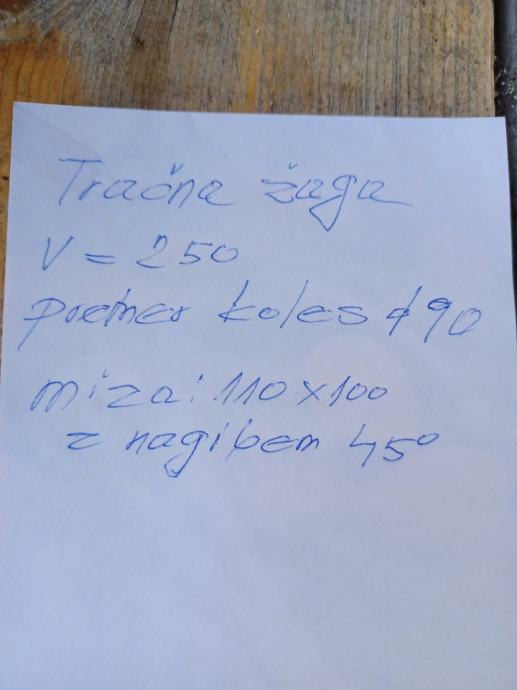 Tračna žaga
V = 250
premer koles ϕ90
miza: 110 x 100
z nagibem 45°